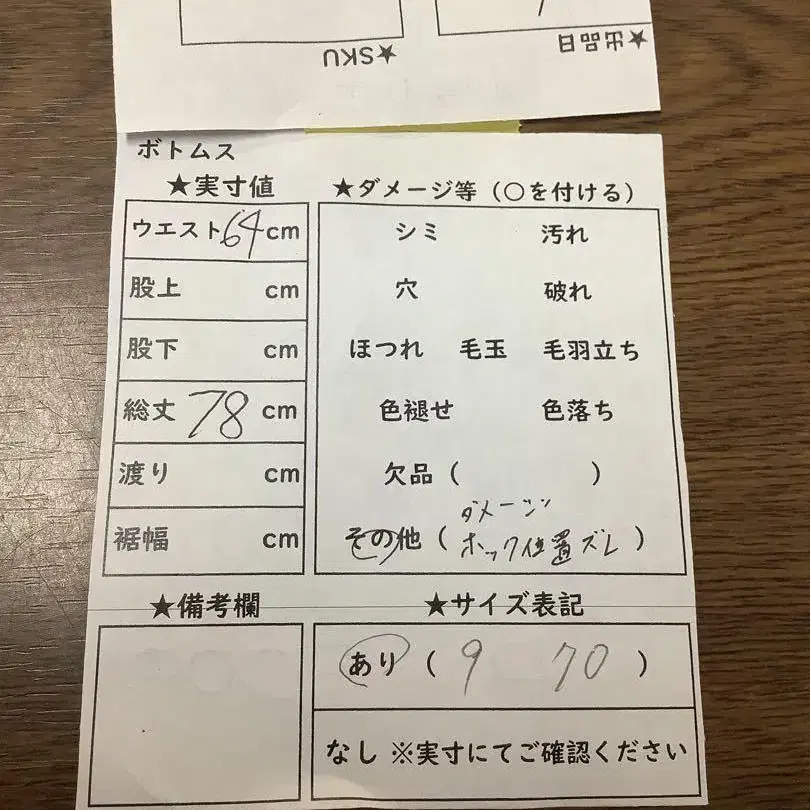 ★SKU
★出品日
ボトムス
★実寸値
ウエスト64cm
股上 cm
股下 cm
総丈 78 cm
渡り cm
裾幅 cm
★ダメージ等（〇を付ける）
シミ 汚れ
穴 破れ
ほつれ 毛玉 毛羽立ち
色褪せ 色落ち
欠品（ ）
ダメージ
その他（ホック位置ズレ）
★備考欄
★サイズ表記
あり（9 70）
なし ※実寸にてご確認ください